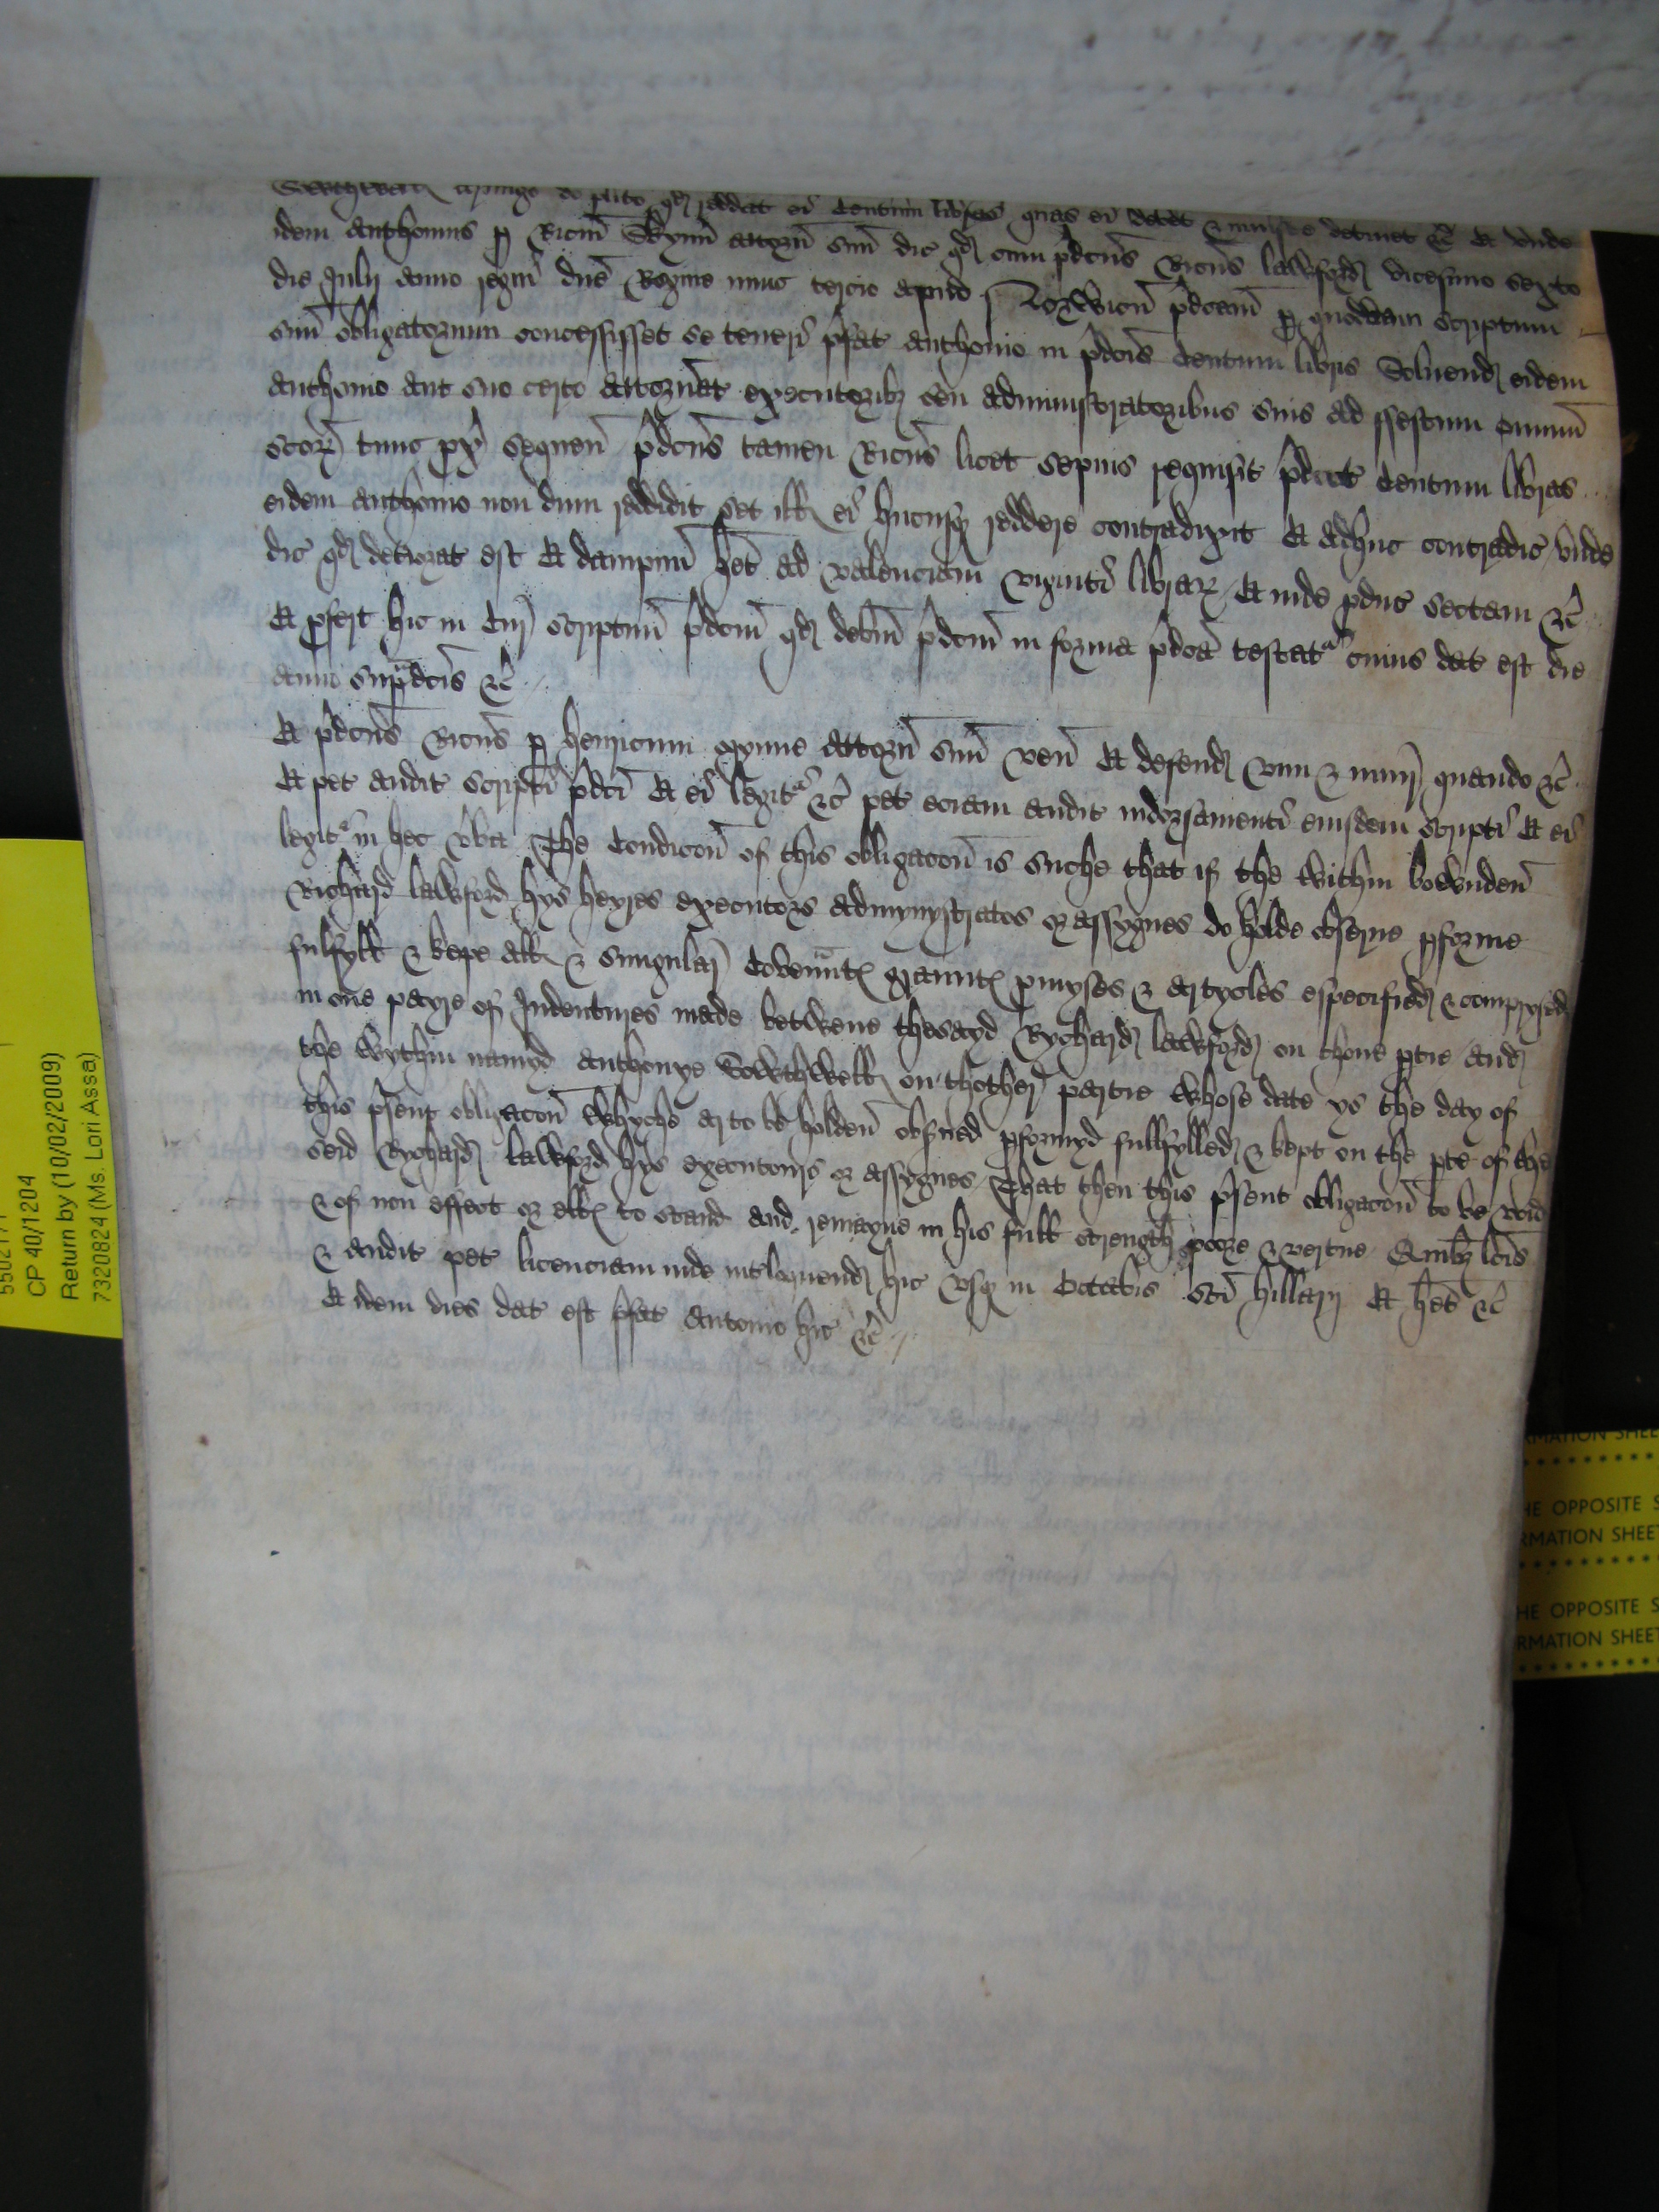 de plito qd reddat ei Centum libras quas ei debet & iniuste detinet &c Et unde
idem Anthonius p Ricm Skynn attorn suu dic qd cum pdcus Ricus lawford vicesimo sexto
die Julij anno regni dne Regine nunc tercio apud Norwicu pdcam p quoddam scriptum
suu obligatorium concessisset se teneri pfat Anthonio in pdcis Centum libris Soluend eidem
Anthonio aut suo certo Attornat executorib seu administratoribus suis ad ffestum omniu
scor tunc px sequen pdcus tamen Ricus licet sepius requisit pdcas Centum libras
eidem Anthonio non dum reddidit set ill ei hucusq reddere contradixit Et adhuc contradic unde
dic qd deteriorat est Et dampnu het ad valenciam viginti librar Et inde pduc sectam &c
Et pfert hic in Cur scriptum pdcm qd debitu pdcm in forma pdca testat cuius dat est die
anno supdcis &c
Et pdcus Ricus p henricum attorn suu ven Et defend vim & iniur quando &c
Et pet audit scripti pdci Et ei legit &c pet eciam audit indorsamenti eiusdem scripti Et ei
legit in hec vba The Condicon of this obligacon is suche that if the within bowunden
Richard lawford hys heyres executors admynystratos or assygnes do holde obserue pforme
fulfyll & kepe all & singular Covenntes grauntes pmyses & artycles especified & comprysed
in one payre of Indentures made betwene thesayd Rychard lawford on thone ptie and
the wythin namyd Anthonye Sowthwell on thother partie whose date ys the day of
this psent obligacon whyche ar to be holden obsued pformyd fullfylled & kept on the pte of the
seid Rychard lawford hys executours or assygnes That then this psent obligacon to be void
& of non effect or elles to stand and remayne in his full strength poore & vertue Quib lcis
& audit pet licenciam inde intloquend hic usq in Octabis sci hillarij Et het &c
Et idem dies dat est pfat Antonio hic &c
CP 40/1204
Return by (10/02/2009)
7320824 (Ms. Lori Assa)
RMATION SHEE
HE OPPOSITE S
RMATION SHEET
HE OPPOSITE S
RMATION SHEET